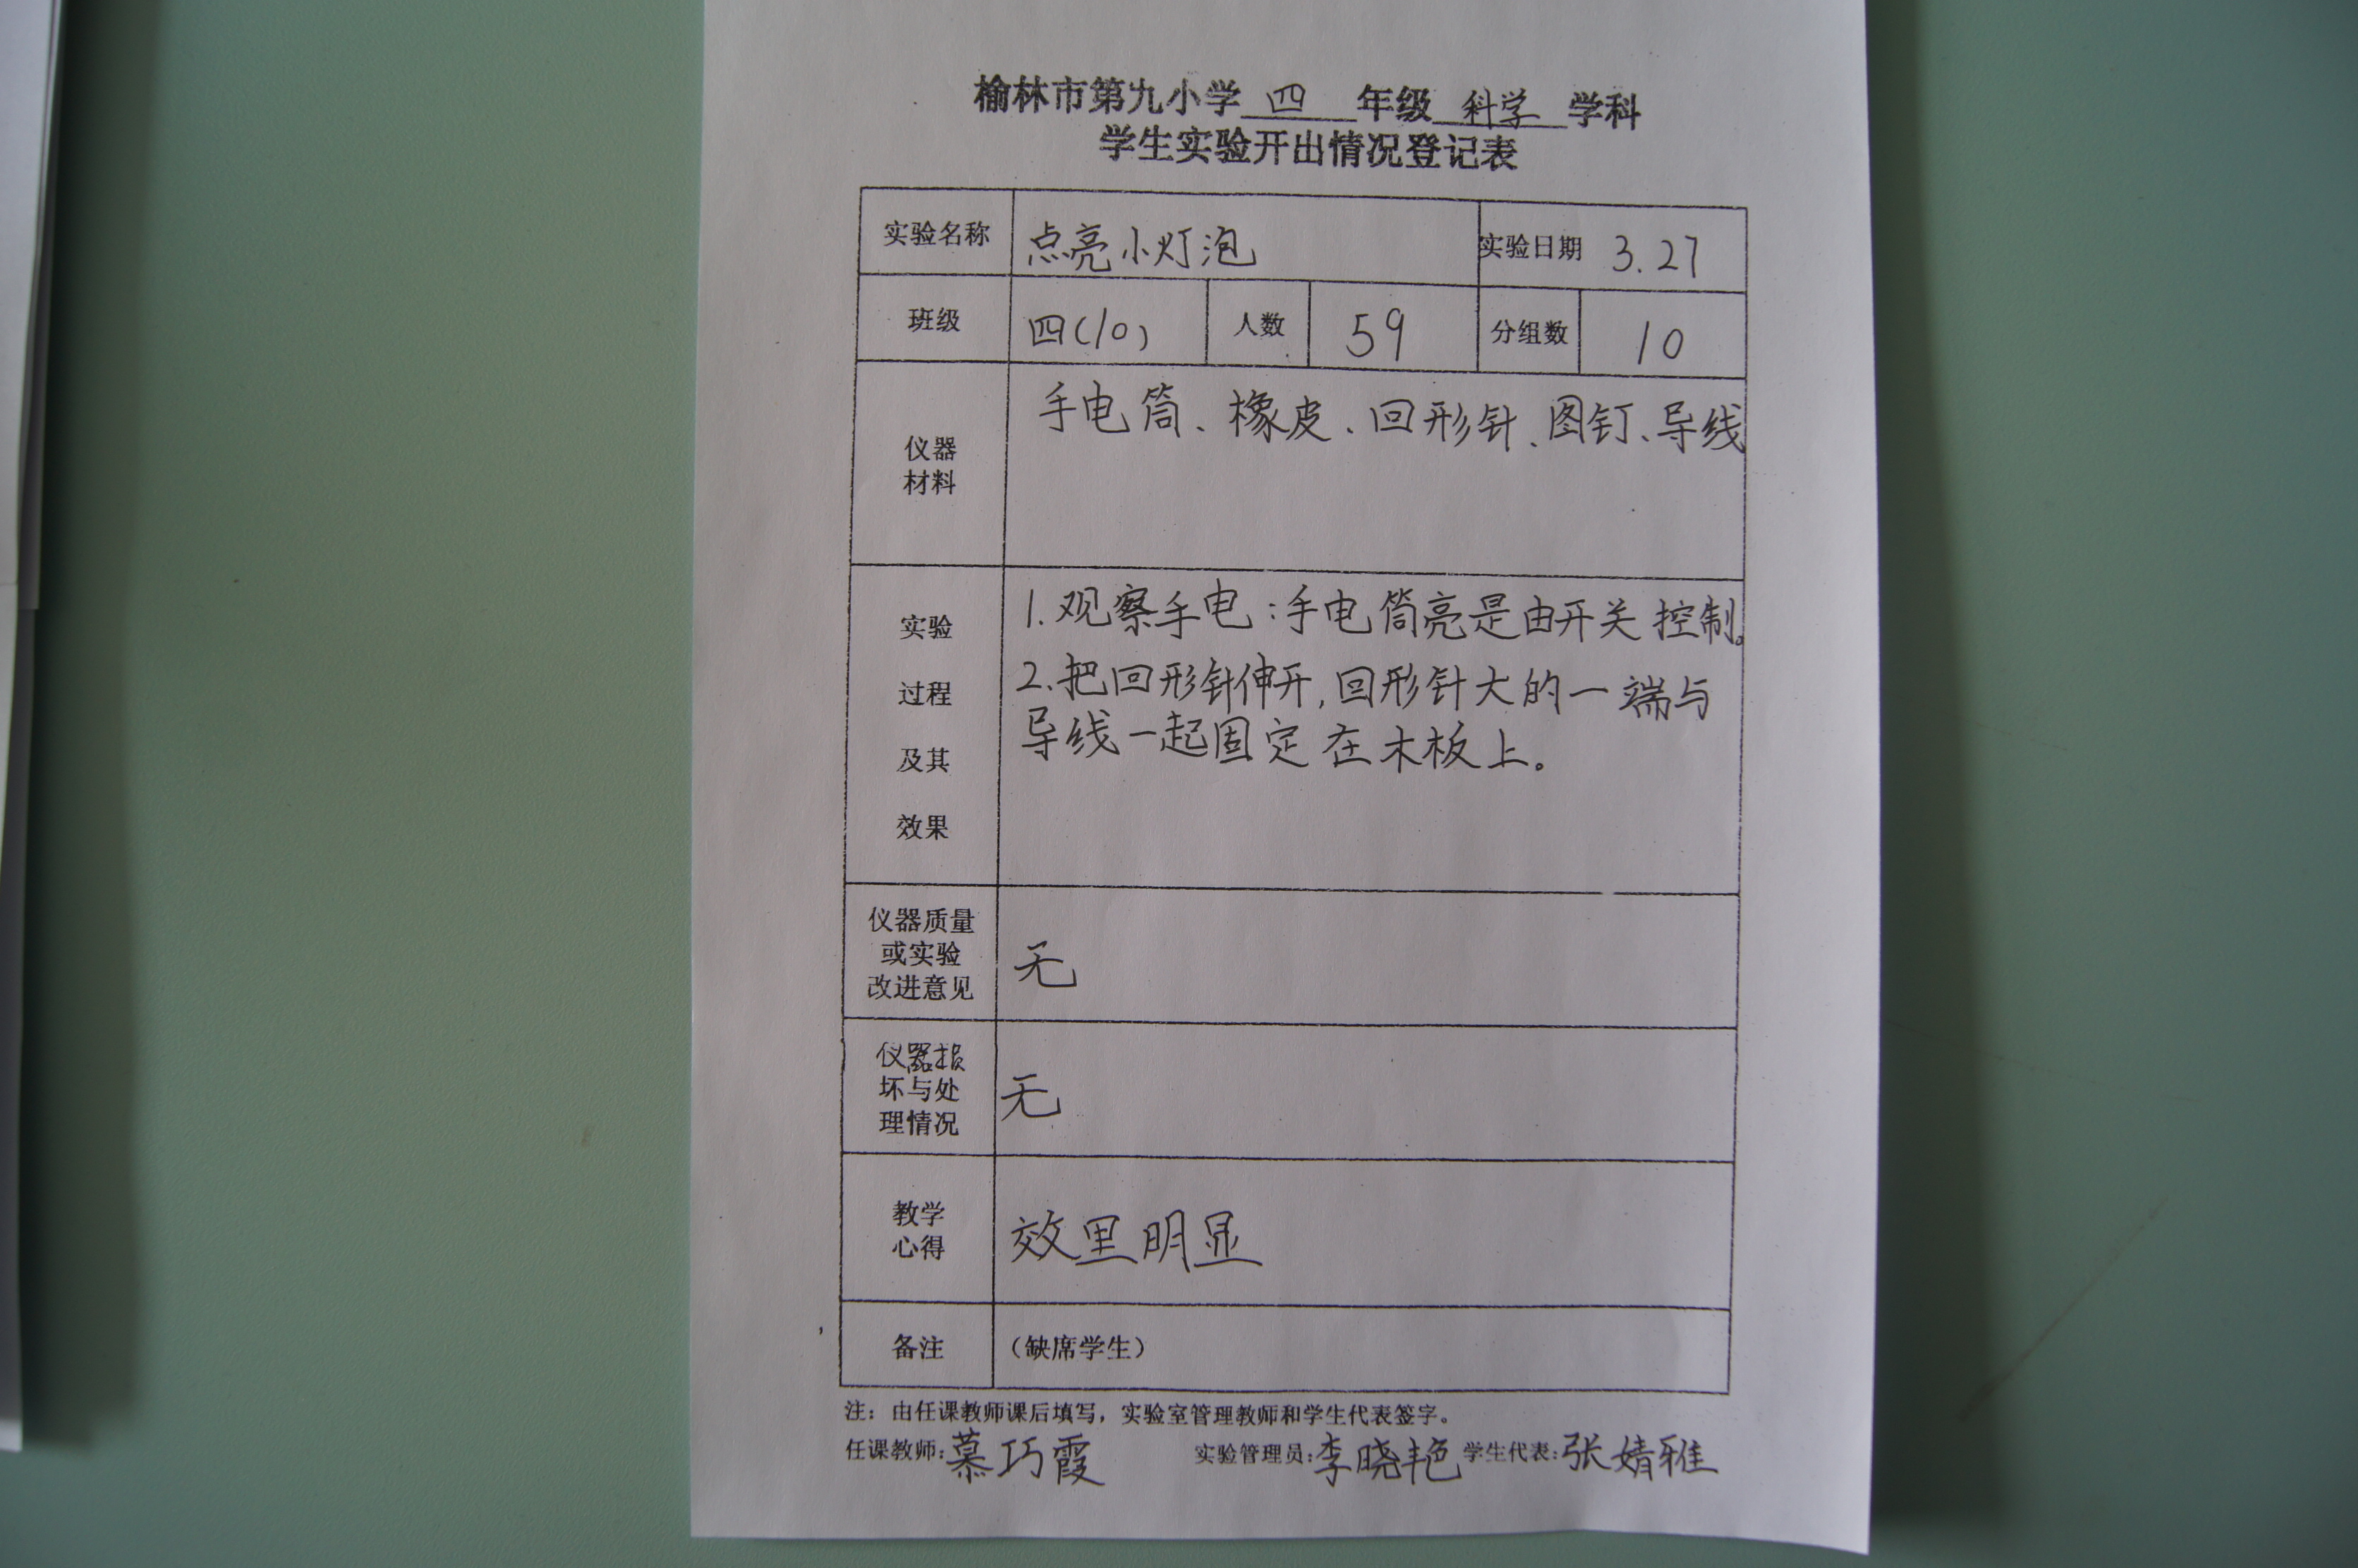 榆林市第九小学 四 年级 科学 学科
学生实验开出情况登记表
实验名称 点亮小灯泡 实验日期 3.27
班级 四(10) 人数 59 分组数 10
仪器
材料
手电筒、橡皮、回形针、图钉、导线
实验
过程
及其
效果
1.观察手电:手电筒亮是由开关控制。
2.把回形针伸开,回形针大的一端与
导线一起固定在木板上。
仪器质量
或实验
改进意见
无
仪器损
坏与处
理情况
无
教学
心得
效里明显
备注 (缺席学生)
注:由任课教师课后填写,实验室管理教师和学生代表签字。
任课教师:慕巧霞 实验管理员:李晓艳 学生代表:张婧雅